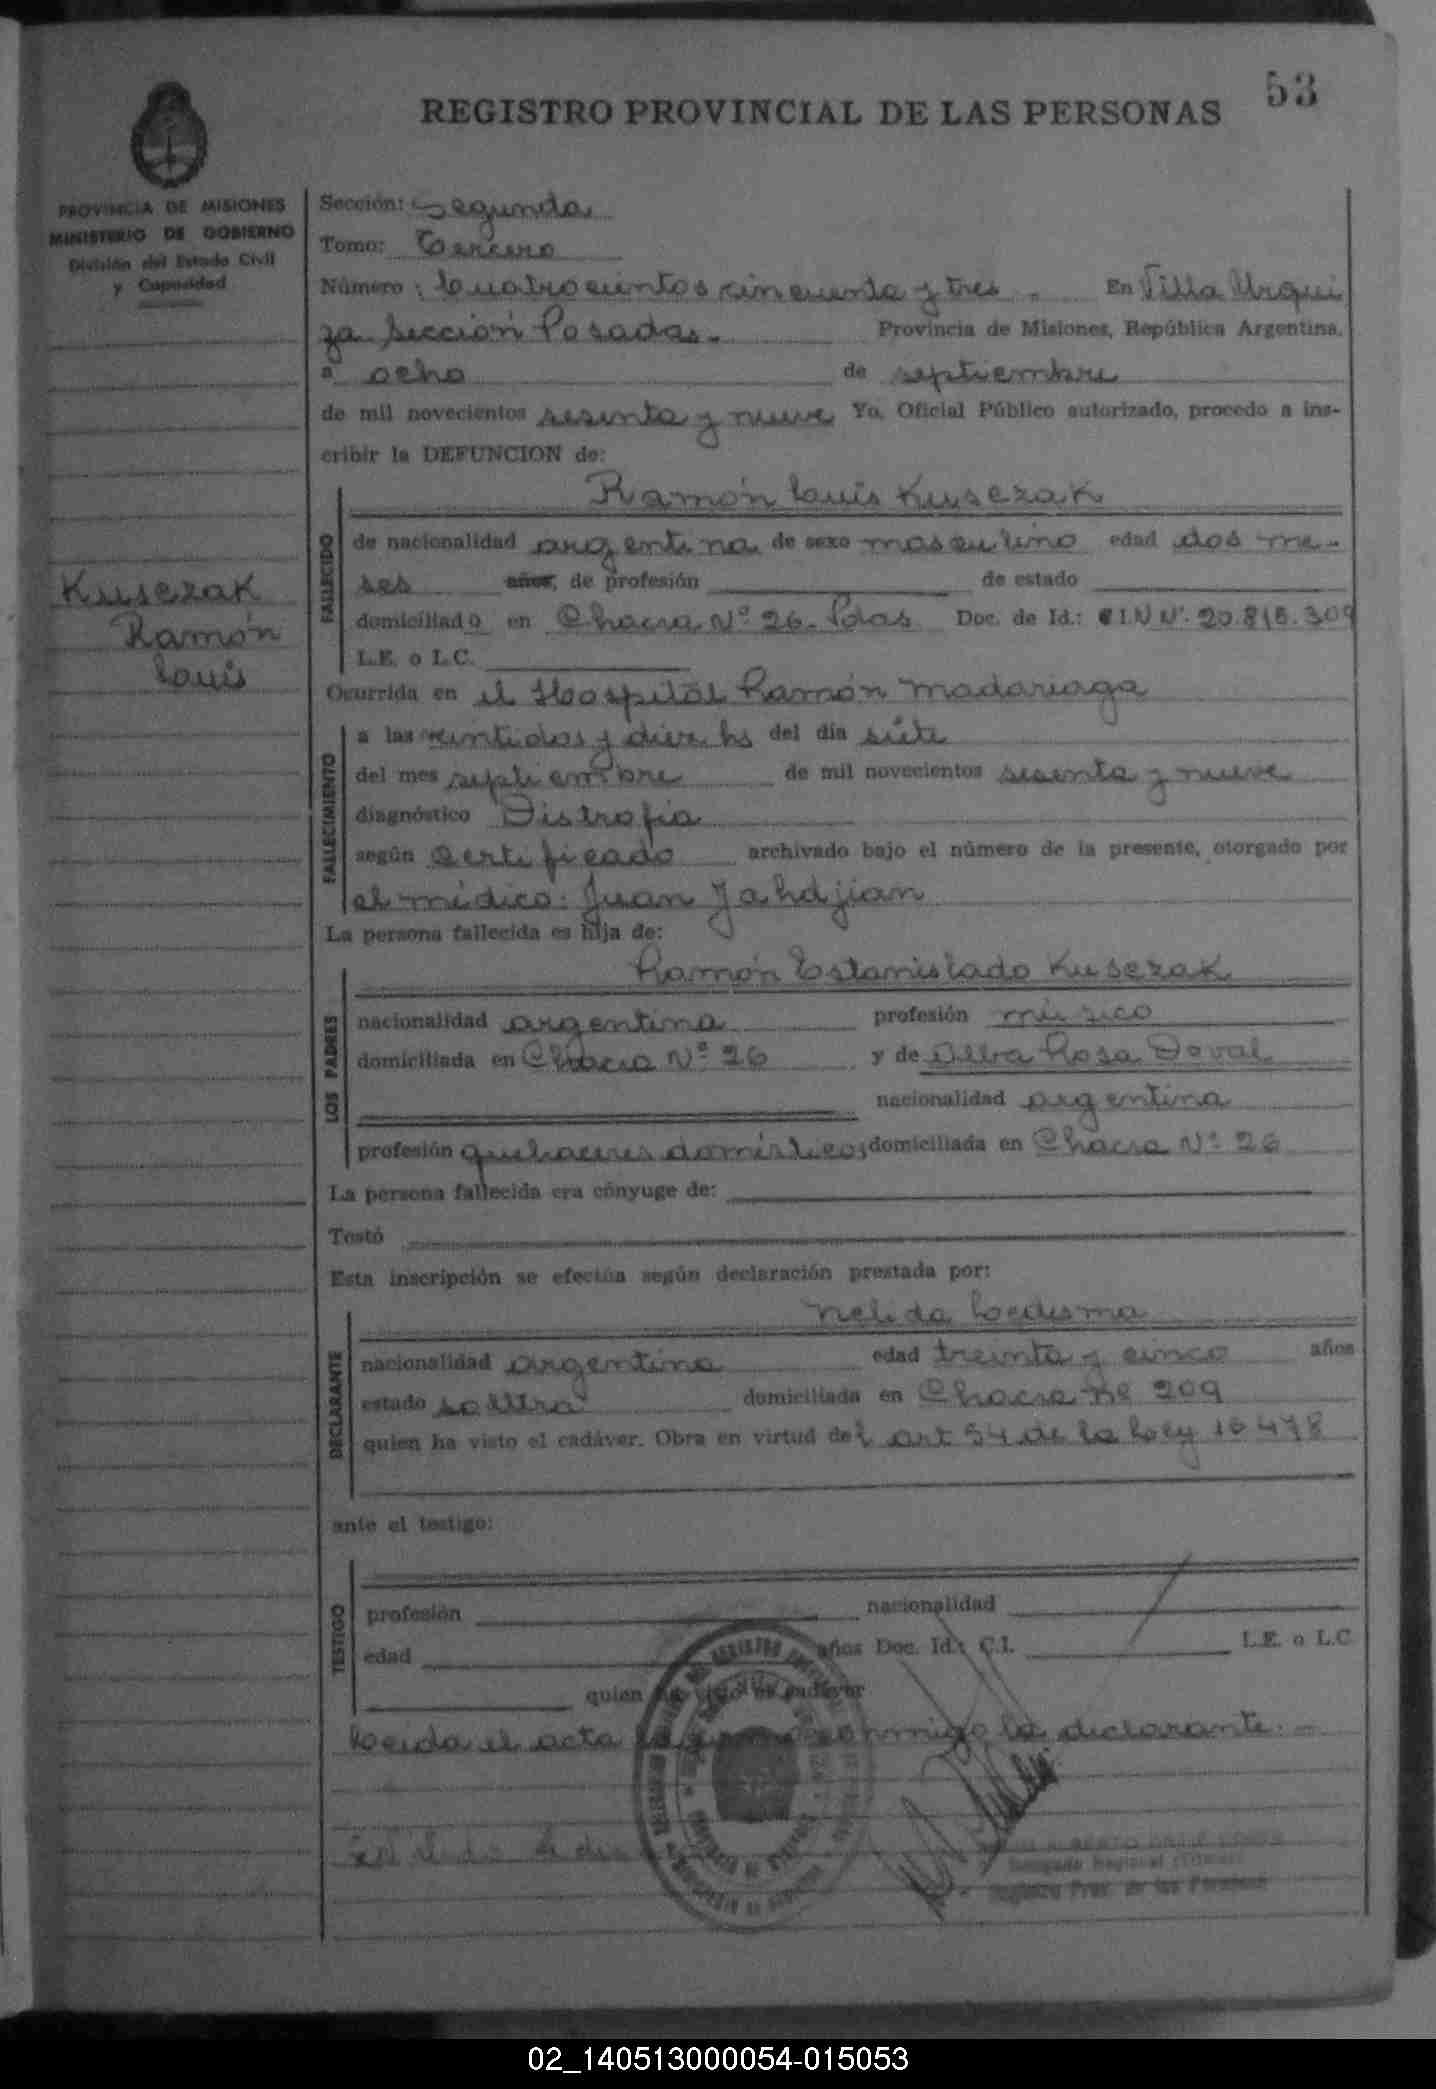 53
REGISTRO PROVINCIAL DE LAS PERSONAS
PROVINCIA DE MISIONES
MINISTERIO DE GOBIERNO
División del Estado Civil
y Capacidad
Kusezak
Ramón
Louis
Sección: Segunda
Tomo: Tercero
Número: Cuatrocientos cincuenta y tres. En Villa Urqui
za Sección Posadas. Provincia de Misiones, República Argentina,
a ocho de septiembre
de mil novecientos sesenta y nueve Yo, Oficial Público autorizado, procedo a ins-
cribir la DEFUNCION de:
Ramón Louis Kusezak
FALLECIDO
de nacionalidad argentina de sexo masculino edad dos me-
ses años, de profesión de estado
domiciliado en Chacra Nº 26. Pdas. Doc. de Id.: C.I.N Nº. 20.815.309
L.E. o L.C.
Ocurrida en el Hospital Ramón Madariaga
FALLECIMIENTO
a las veintidos y diez hs del día siete
del mes septiembre de mil novecientos sesenta y nueve
diagnóstico Distrofia
según Certificado archivado bajo el número de la presente, otorgado por
el médico: Juan Jahdjian
La persona fallecida es hija de:
LOS PADRES
Ramón Estanislado Kusezak
nacionalidad argentina profesión músico
domiciliada en Chacra Nº 26 y de Alba Rosa Doval
nacionalidad argentina
profesión quehaceres domésticos domiciliada en Chacra Nº 26
La persona fallecida era cónyuge de:
Testó
Esta inscripción se efectúa según declaración prestada por:
DECLARANTE
Nelida Ledesma
nacionalidad argentina edad treinta y cinco años
estado soltera domiciliada en Chacra Nº 209
quien ha visto el cadáver. Obra en virtud del art 54 de la Ley 16478
ante el testigo:
TESTIGO
profesión nacionalidad
edad años Doc. Id.: C.I. L.E. o L.C
quien ha visto el cadáver
Leida el acta la firma conmigo la declarante.
Delegado Regional
Registro Prov. de las Personas
02_140513000054-015053